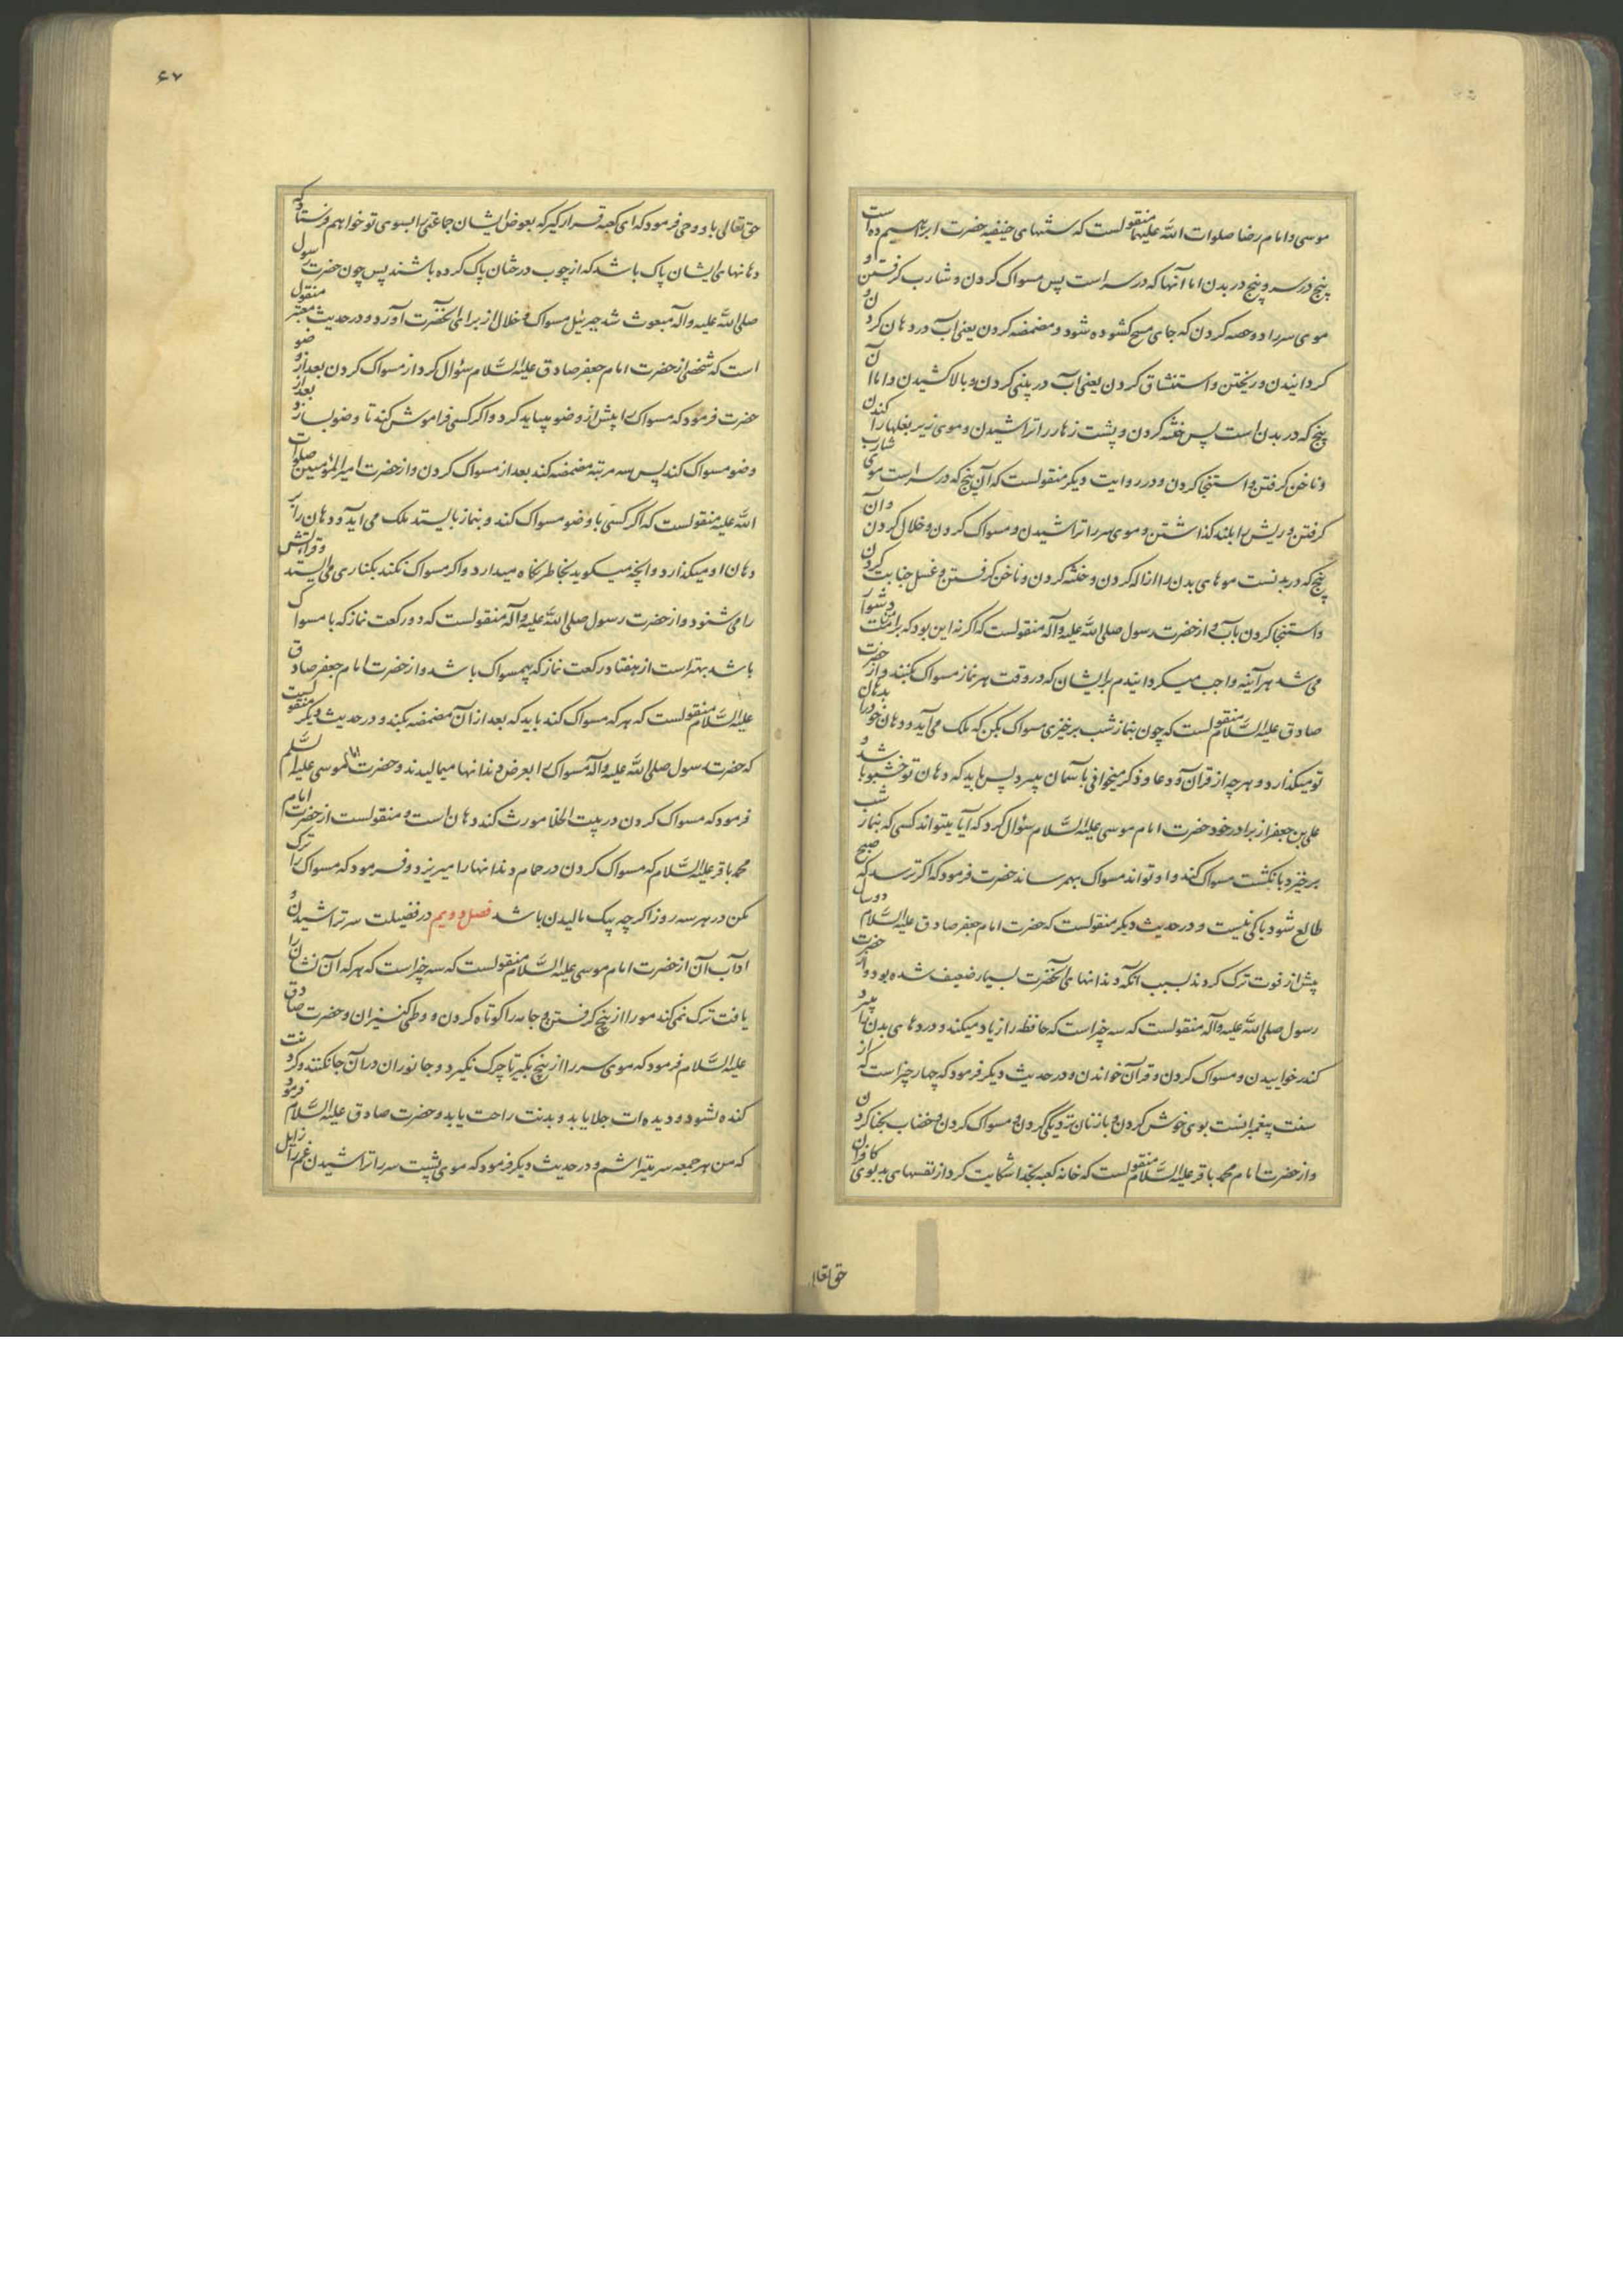 موسی و امام رضا صلوات الله علیهما منقولست که سنتهای حنیفیه حضرت ابراهیم ده است
پنج در سر و پنج در بدن اما آنها که در سر است پس مسواک کردن و شارب گرفتن و
موی سر را دو حصه کردن که جای مسح کشوده شود و مضمضه کردن یعنی آب در دهان کردن و
کردانیدن و ریختن و استنشاق کردن یعنی آب در بینی کردن و بالا کشیدن و اما آن
پنج که در بدن است پس ختنه کردن و پشت زهار را تراشیدن و موی زیر بغلها را کندن
و ناخن کرفتن و استنجا کردن و در روایت دیکر منقولست که آن پنج که در سر است موی شارب
کرفتن و ریش را بلند کذاشتن و موی سر را تراشیدن و مسواک کردن و خلال کردن و آن
پنج که در بدنست موهای بدن را ازاله کردن و ختنه کردن و ناخن کرفتن و غسل جنابت کردن
و استنجا کردن بآب و از حضرت رسول صلی الله علیه و آله منقولست که اکر نه این بود که بر امت من دشوار
می شد هر آینه واجب میکردانیدم بر ایشان که در وقت هر نماز مسواک بکنند و از حضرت
صادق علیه السلام منقولست که چون بنماز شب برخیزی مسواک بکن که ملک می آید و دهان خود را بدهان
تو میکذارد و هر چه از قرآن و دعا و ذکر میخوانی بآسمان میبرد پس باید که دهان تو خشبو باشد و
علی بن جعفر از برادر خود حضرت امام موسی علیه السلام سؤال کرد که آیا میتواند کسی که بنماز شب
برخیزد بانکشت مسواک کند و او تواند مسواک بهم رساند حضرت فرمود که اکر ترسد که صبح
طالع شود باکی نیست و در حدیث دیکر منقولست که حضرت امام جعفر صادق علیه السلام دو سال
پیش از فوت ترک کردند بسبب آنکه دندانهای آنحضرت بسیار ضعیف شده بود و از حضرت
رسول صلی الله علیه و آله منقولست که سه چیز است که حافظه را زیاد میکند و دردهای بدن را میبرد
کندر خاییدن و مسواک کردن و قرآن خواندن و در حدیث دیکر فرمود که چهار چیز است که از
سنت پیغمبرانست بوی خوش کردن و با زنان نزدیکی کردن و مسواک کردن و خضاب بحنا کردن
و از حضرت امام محمد باقر علیه السلام منقولست که خانه کعبه بخدا شکایت کرد از نفسهای بدبوی کافران
حق تعالی
۶۷
حق تعالی باو وحی فرمود که ای کعبه قرار کیر که بعوض ایشان جماعتی را بسوی تو خواهم فرستاد که
دهانهای ایشان پاک باشد که از چوب درختان پاک کرده باشند پس چون حضرت رسول
صلی الله علیه و آله مبعوث شد جبرئیل مسواک و خلال از برای آنحضرت آورد و در حدیث معتبر منقول
است که شخصی از حضرت امام جعفر صادق علیه السلام سؤال کرد از مسواک کردن بعد از وضو
حضرت فرمود که مسواک را پیش از وضو میباید کرد و اکر کسی فراموش کند تا وضو بسازد بعد از
وضو مسواک کند پس سه مرتبه مضمضه کند بعد از مسواک کردن و از حضرت امیر المؤمنین صلوات
الله علیه منقولست که اکر کسی با وضو مسواک کند و بنماز بایستد ملک می آید و دهان را بر
دهان او میکذارد و آنچه میکوید بخاطر نکاه میدارد و اکر مسواک نکند بکناری می ایستد و قرائتش
را می شنود و از حضرت رسول صلی الله علیه و آله منقولست که دو رکعت نماز که با مسواک
باشد بهتر است از هفتاد رکعت نماز که بیمسواک باشد و از حضرت امام جعفر صادق
علیه السلام منقولست که هر که مسواک کند باید که بعد از آن مضمضه بکند و در حدیث دیکر منقولست
که حضرت رسول صلی الله علیه و آله مسواک را بعرض دندانها میمالیدند و حضرت امام موسی علیه السلم
فرمود که مسواک کردن در بیت الخلا مورث کند دهان است و منقولست از حضرت امام
محمد باقر علیه السلام که مسواک کردن در حمام دندانها را میریزد و فرمود که مسواک را ترک
مکن در هر سه روز اکر چه بیک مالیدن باشد فصل دویم در فضیلت سر تراشیدن و
آداب آن از حضرت امام موسی علیه السلام منقولست که سه چیز است که هر که آن نشان را
یافت ترک نمی کند مو را از بیخ کرفتن و جامه را کوتاه کردن و وطی کنیزان و حضرت صادق
علیه السلام فرمود که موی سر را از بیخ بکیر تا چرک نکیرد و جانوران در آن جا نکنند و کردنت
کنده شود و دیده ات جلا یابد و بدنت راحت یابد و حضرت صادق علیه السلام فرمود
که من هر جمعه سر میتراشم و در حدیث دیکر فرمود که موی پشت سر را تراشیدن غم را زایل